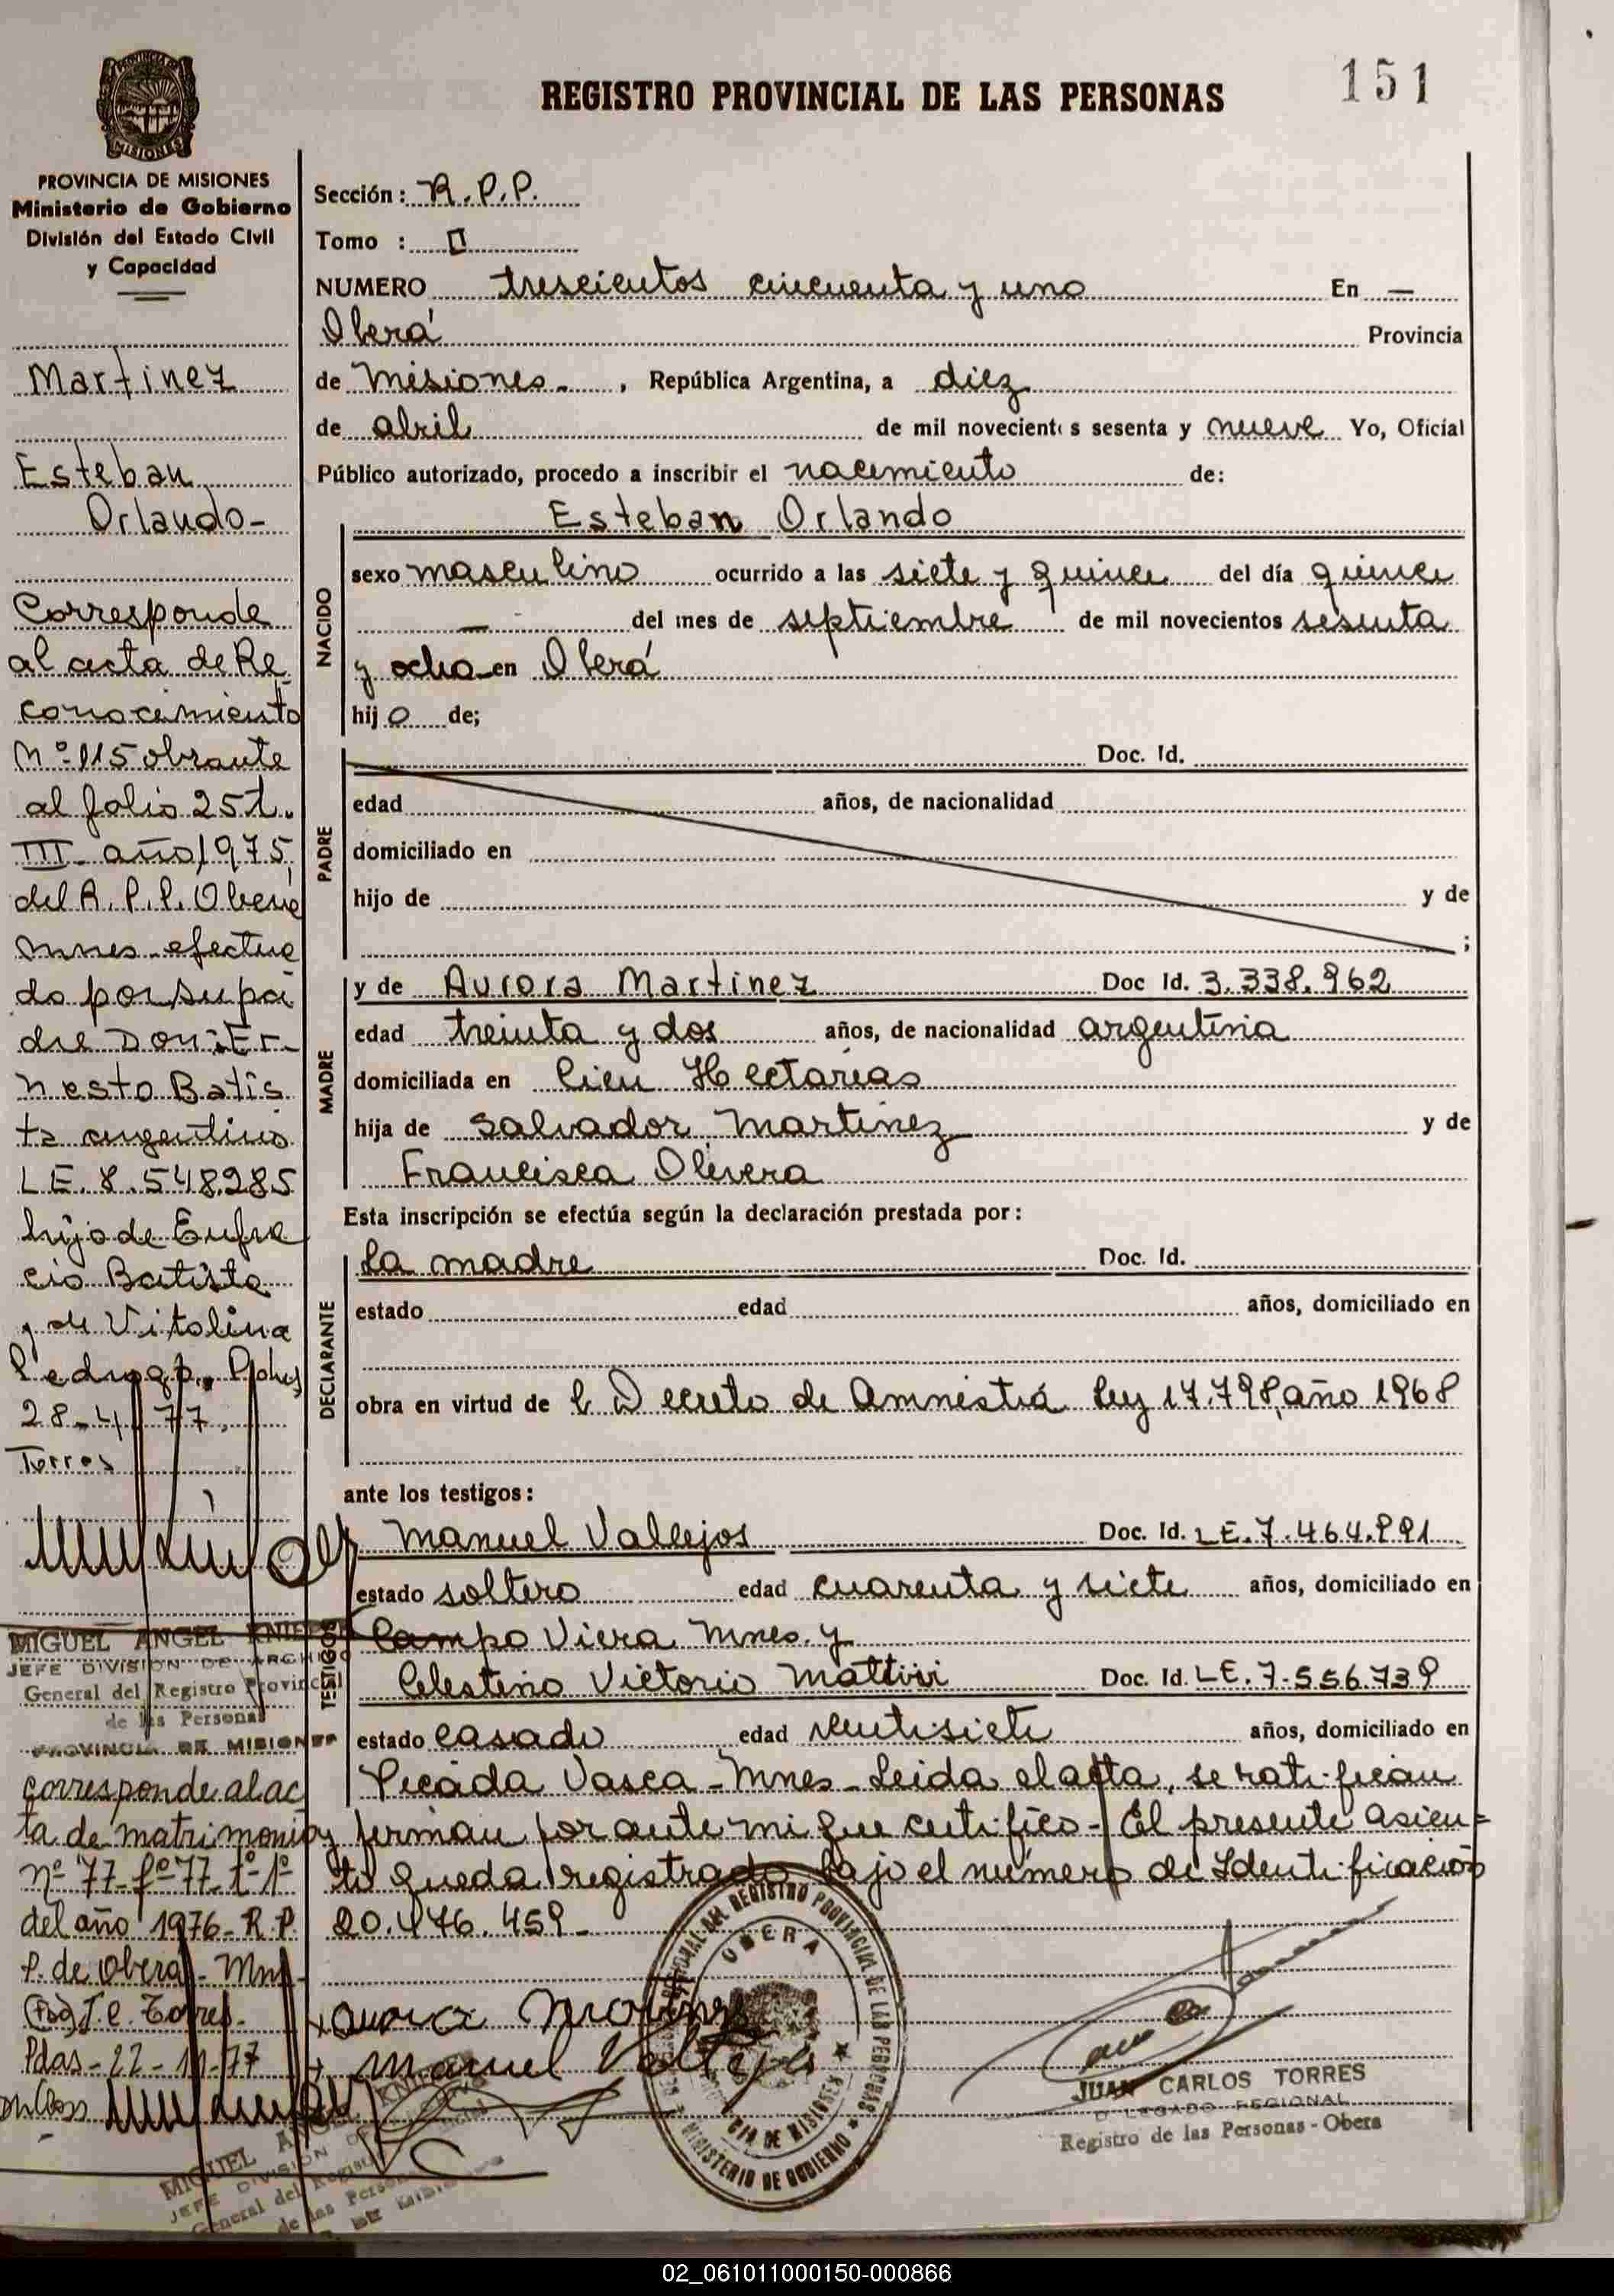 151
REGISTRO PROVINCIAL DE LAS PERSONAS
PROVINCIA DE MISIONES
Ministerio de Gobierno
División del Estado Civil
y Capacidad
Martinez
Esteban
Orlando-
Corresponde
al acta de Re
conocimiento
Nº 115 obrante
al folio 25 t.
III año 1975
del R.P.P. Oberá
Mnes. efectua
do por su pa
dre Don: Er-
nesto Batis
ta argentino
L.E. 8.548.285
hijo de Eufra
cio Batista
y de Vitolina
Pedrozo. Pdas
28-4-77.
Torres
MIGUEL ANGEL
JEFE DIVISION DE ARCHIVO
General del Registro Provincial
de las Personas
PROVINCIA DE MISIONES
corresponde al ac
ta de matrimonio
nº 77 fº 77 tº 1º
del año 1976- R.P.
P. de Oberá- Mns-
(Fdo) J.C. Torres-
Pdas-22-11-77
Sección: R.P.P.
Tomo :
NUMERO trescientos cincuenta y uno En —
Oberá Provincia
de Misiones-, República Argentina, a diez
de abril de mil novecientos sesenta y nueve Yo, Oficial
Público autorizado, procedo a inscribir el nacimiento de:
NACIDO
Esteban Orlando
sexo masculino ocurrido a las siete y quince del día quince
— del mes de septiembre de mil novecientos sesenta
y ocho en Oberá
hijo de;
PADRE
Doc. Id.
edad años, de nacionalidad
domiciliado en
hijo de y de
;
MADRE
y de Aurora Martinez Doc Id. 3.338.962
edad treinta y dos años, de nacionalidad argentina
domiciliada en Cien Hectáreas
hija de Salvador Martinez y de
Francisca Olivera
Esta inscripción se efectúa según la declaración prestada por:
DECLARANTE
la madre Doc. Id.
estado edad años, domiciliado en
obra en virtud de Decreto de Amnestiá Ley 17.798, año 1968
ante los testigos:
TESTIGOS
Manuel Vallejos Doc. Id. L.E. 7.464.891
estado soltero edad cuarenta y siete años, domiciliado en
Campo Viera Mnes. y
Celestino Victorio Doc. Id. L.E. 7.556.739
estado casado edad ventisiete años, domiciliado en
Picada Vasca-Mnes-Leida el acta, se ratifican
y firman por ante mi que certifico- El presente asien-
to queda registrado bajo el número de Identificación
20.476.459-
Manuel Vallejos
REGISTRO PROVINCIAL DE LAS PERSONAS
OBERA
MINISTERIO DE GOBIERNO
JUAN CARLOS TORRES
DELEGADO REGIONAL
Registro de las Personas - Obera
MIGUEL
JEFE DIVISION DE
General del Registro
de las Personas
02_061011000150-000866